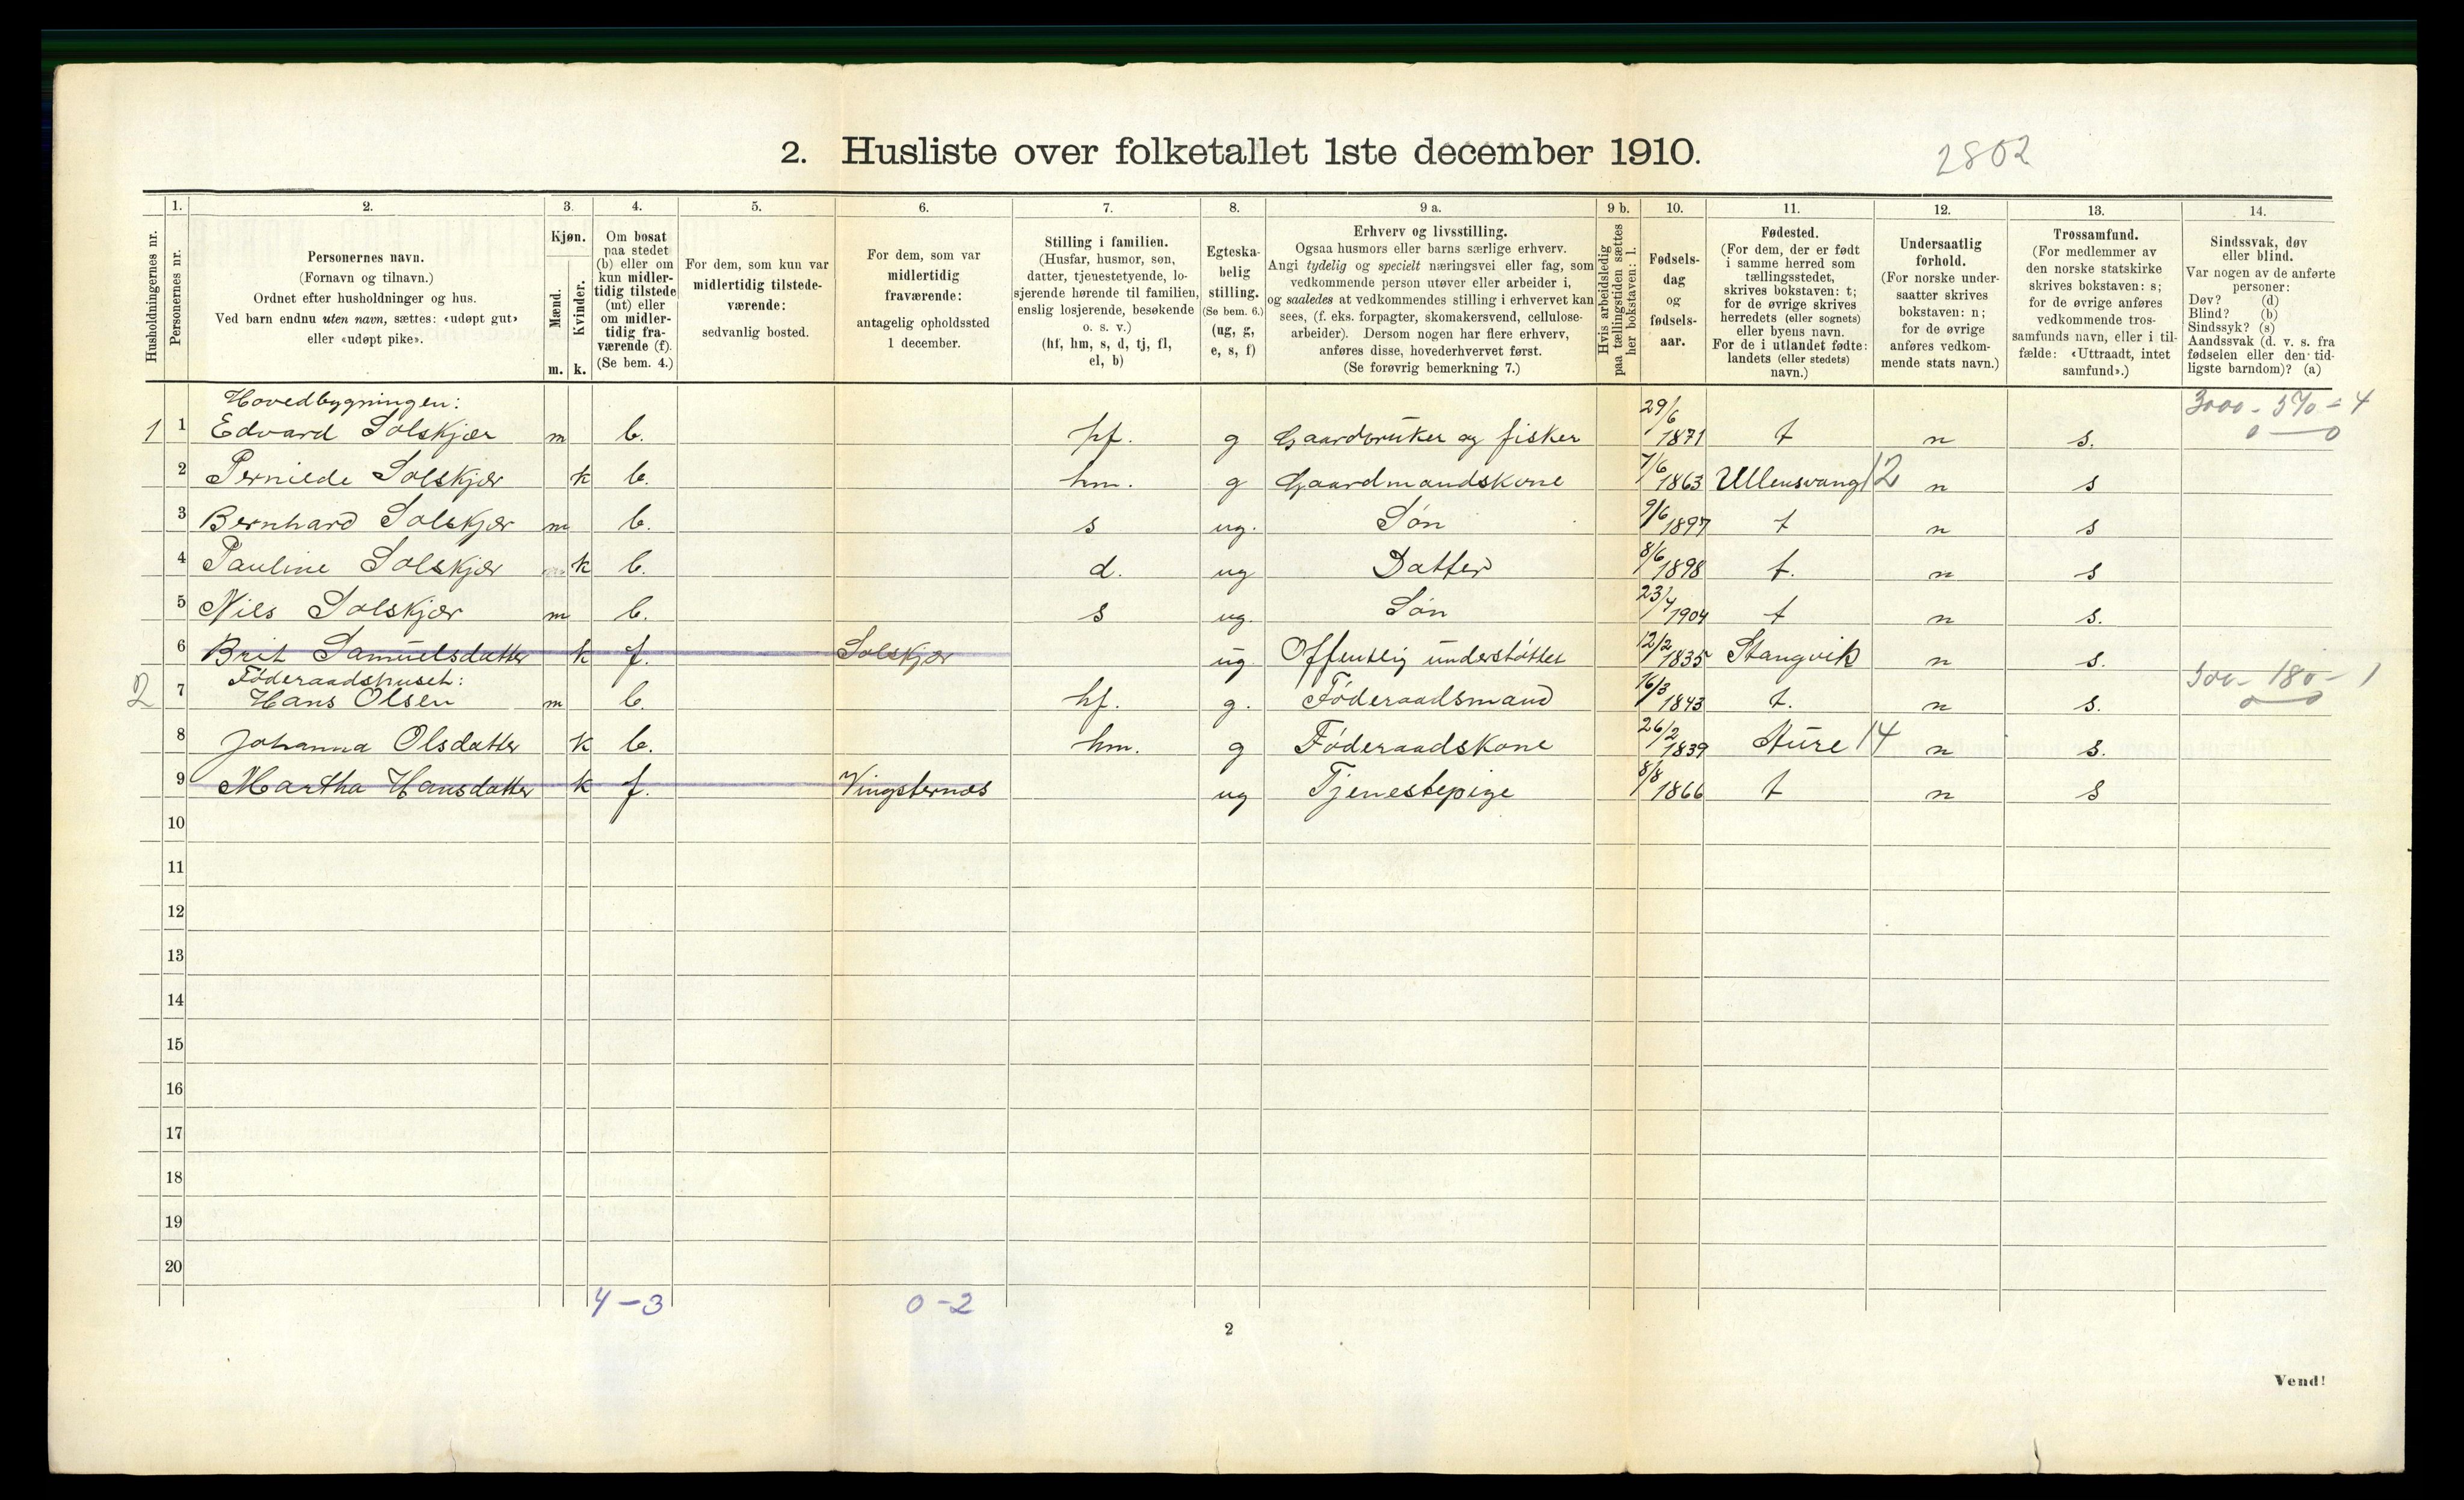 2. Husliste over folketallet 1ste december 1910.
2802
1. 2. 3. 4. 5. 6. 7. 8. 9 a. 9 b. 10. 11. 12. 13. 14.
Husholdningernes nr.
Personernes nr.
Personernes navn.
(Fornavn og tilnavn.)
Ordnet efter husholdninger og hus.
Ved barn endnu uten navn, sættes: «udøpt gut»
eller «udøpt pike».
Kjøn.
Mænd.
Kvinder.
m. k.
Om bosat
paa stedet
(b) eller om
kun midler-
tidig tilstede
(mt) eller
om midler-
tidig fra-
værende (f).
(Se bem. 4.)
For dem, som kun var
midlertidig tilstede-
værende:
sedvanlig bosted.
For dem, som var
midlertidig
fraværende:
antagelig opholdssted
1 december.
Stilling i familien.
(Husfar, husmor, søn,
datter, tjenestetyende, lo-
sjerende hørende til familien,
enslig losjerende, besøkende
o. s. v.)
(hf, hm, s, d, tj, fl,
el, b)
Egteska-
belig
stilling.
(Se bem. 6.)
(ug, g,
e, s, f)
Erhverv og livsstilling.
Ogsaa husmors eller barns særlige erhverv.
Angi tydelig og specielt næringsvei eller fag, som
vedkommende person utøver eller arbeider i,
og saaledes at vedkommendes stilling i erhvervet kan
sees, (f. eks. forpagter, skomakersvend, cellulose-
arbeider). Dersom nogen har flere erhverv,
anføres disse, hovederhvervet først.
(Se forøvrig bemerkning 7.)
Hvis arbeidsledig
paa tællingstiden sættes
her bokstaven: l.
Fødsels-
dag
og
fødsels-
aar.
Fødested.
(For dem, der er født
i samme herred som
tællingsstedet,
skrives bokstaven: t;
for de øvrige skrives
herredets (eller sognets)
eller byens navn.
For de i utlandet fødte:
landets (eller stedets)
navn.)
Undersaatlig
forhold.
(For norske under-
saatter skrives
bokstaven: n;
for de øvrige
anføres vedkom-
mende stats navn.)
Trossamfund.
(For medlemmer av
den norske statskirke
skrives bokstaven: s;
for de øvrige anføres
vedkommende tros-
samfunds navn, eller i til-
fælde: «Uttraadt, intet
samfund».)
Sindssvak, døv
eller blind.
Var nogen av de anførte
personer:
Døv? (d)
Blind? (b)
Sindssyk? (s)
Aandssvak (d. v. s. fra
fødselen eller den tid-
ligste barndom)? (a)
Hovedbygningen:
1 1 Edvard Solskjær m b. hf. g Gaardbruker og fisker 29/6 1871 t n s.
2 Pernilde Solskjær k b. hm. g Gaardmandskone 7/6 1863 Ullensvang 12 n s
3 Bernhard Solskjær m b. s ug. Søn 9/6 1897 t n s
4 Pauline Solskjær k b. d. ug Datter 8/6 1898 t. n s
5 Nils Solskjær m b. s ug. Søn 23/4 1904 t n s.
6 Brit Samuelsdatter k f. Solskjær ug Offentlig understøttet 12/2 1835 Stangvik n s.
Føderaadshuset:
2 7 Hans Olsen m b. hf. g. Føderaadsmand 16/3 1843 t. n s.
8 Johanna Olsdatter k b. hm. g Føderaadskone 26/2 1839 Aure 14 n s.
9 Martha Hansdatter k f. Vingsternes ug Tjenestepige 8/8 1866 t n s
10
11
12
13
14
15
16
17
18
19
20
4-3 0-2
2
Vend!